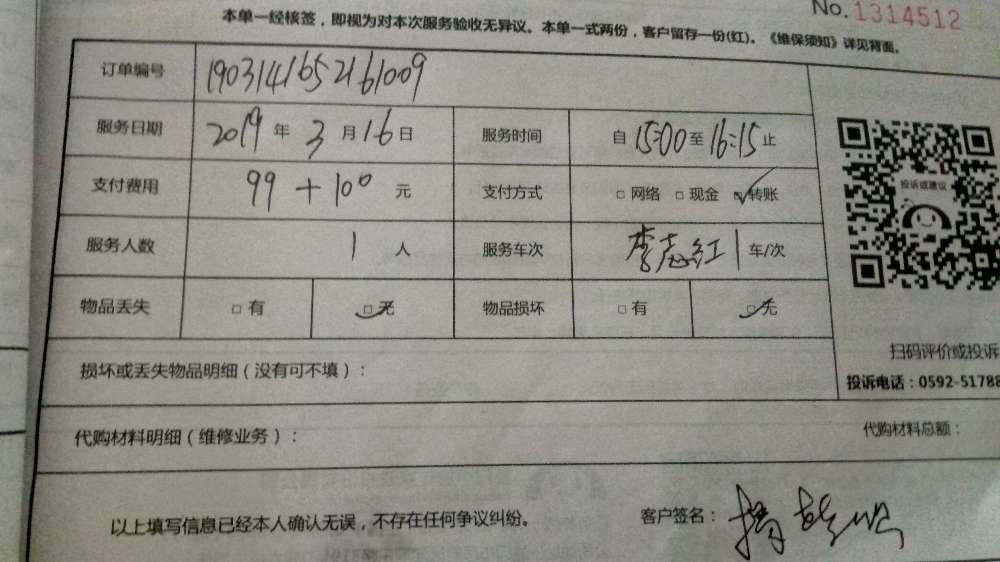 No. 1314512
本单一经核签，即视为对本次服务验收无异议。本单一式两份，客户留存一份(红)。《维保须知》详见背面。
订单编号 1903141652161009
服务日期 2019 年 3 月 16 日 服务时间 自 15:00 至 16:15 止
支付费用 99 + 100 元 支付方式 □ 网络 □ 现金 □ 转账
服务人数 1 人 服务车次 李志红 1 车/次
物品丢失 □ 有 □ 无 物品损坏 □ 有 □ 无
投诉或建议
扫码评价或投诉
投诉电话：0592-51788
损坏或丢失物品明细（没有可不填）：
代购材料明细（维修业务）： 代购材料总额：
以上填写信息已经本人确认无误，不存在任何争议纠纷。 客户签名：